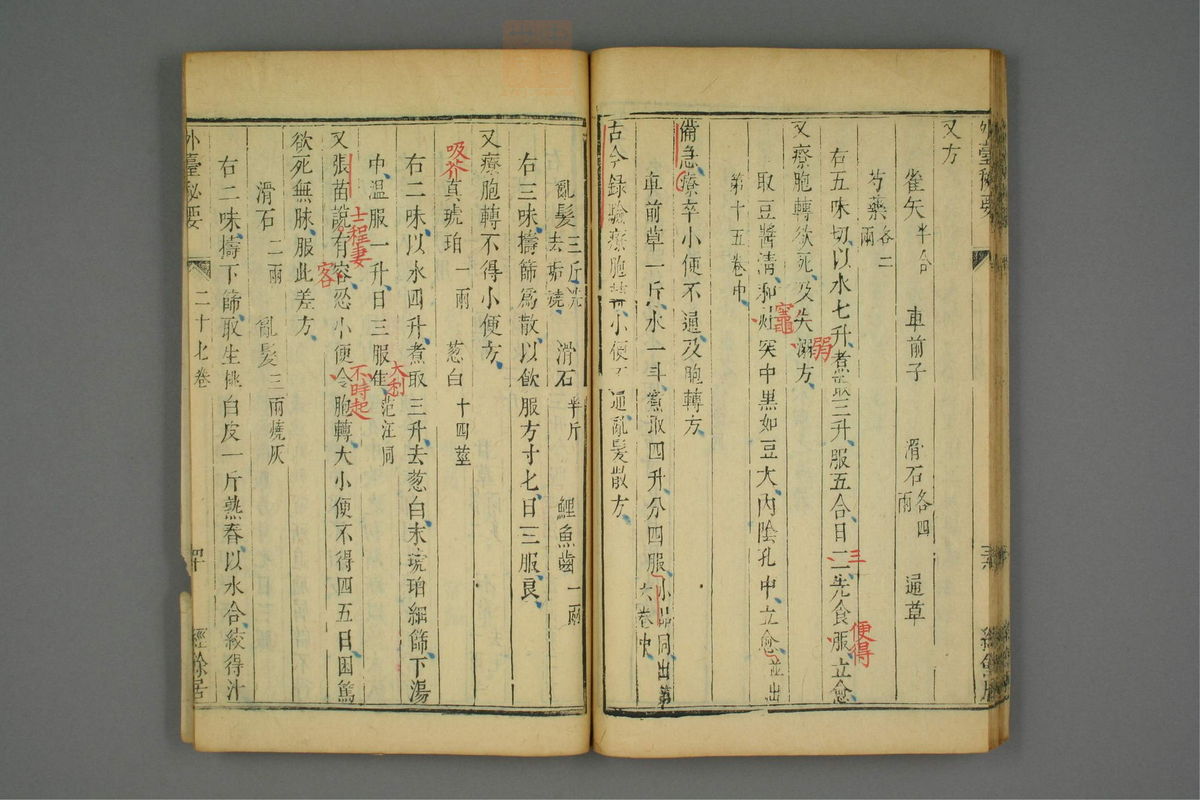 又方
雀矢半合 車前子 滑石各四兩 通草
芍藥各二兩
右五味切以水七升煮取三升服五合日二三先食服便得立愈
又療胞轉欲死及失溺弱方
取豆醬清和灶竈突中黑如豆大內陰孔中立愈並出
第十五卷中
備急療卒小便不通及胞轉方
車前草一斤水一斗煮取四升分四服小品同出第
六卷中
古今錄驗療胞轉小便不通亂髮散方
亂髮三斤洗去垢燒 滑石半斤 鯉魚齒一兩
右三味擣篩為散以飲服方寸匕日三服良
又療胞轉不得小便方
吸芥
真琥珀一兩 葱白十四莖
右二味以水四升煮取三升去葱白末琥珀細篩下湯
中溫服一升日三服佳大利范汪同
又張苗說有容士程妻客恐小便令不時起胞轉大小便不得四五日困篤
欲死無脉服此差方
滑石二兩 亂髮三兩燒灰
右二味擣下篩取生桃白皮一斤熟舂以水合絞得汁
外臺秘要 二十七卷 四十 經餘居